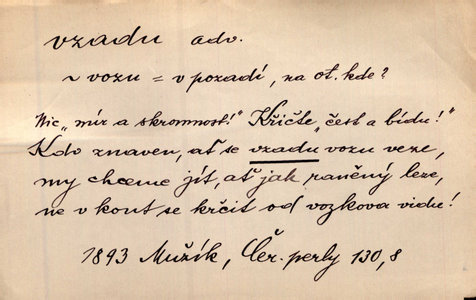 vzadu adv.
~ vozu = v pozadí, na ot. kde?
Nic „mír a skromnost!" Křičte „čest a bídu!"
Kdo znaven, ať se vzadu vozu veze,
my chceme jít, ať jak raněný leze,
ne v kout se krčit od vozkova vidu!
1893 Mužík, Čer. perly 130,8